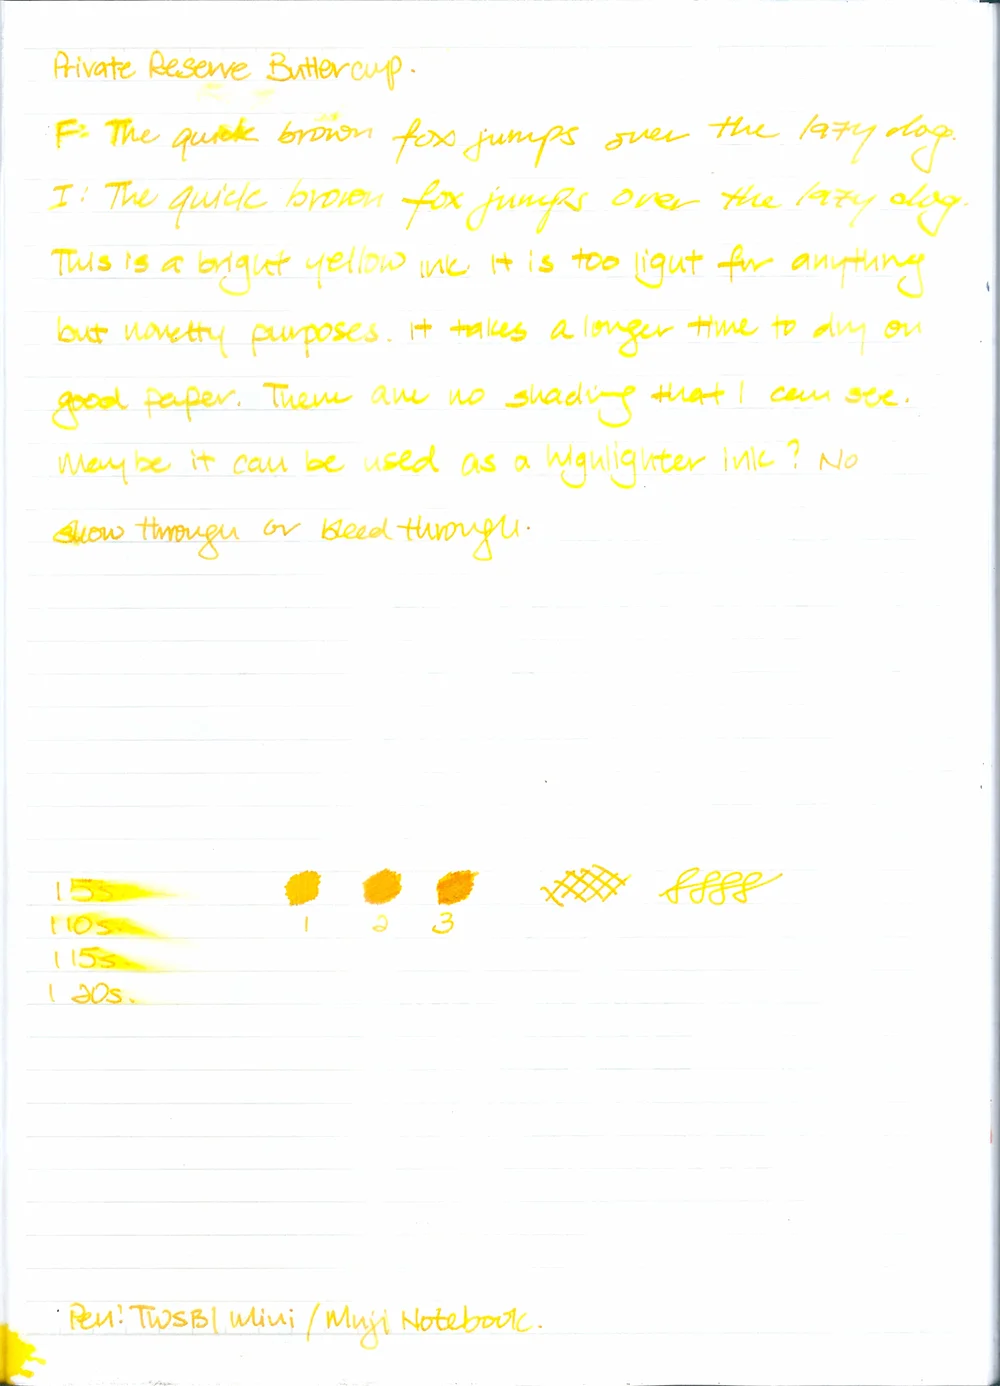 Private Reserve Buttercup.
F: The quick brown fox jumps over the lazy dog.
I: The quick brown fox jumps over the lazy dog.
This is a bright yellow ink. It is too light for anything
but novelty purposes. It takes a longer time to dry on
good paper. There are no shading that I can see.
Maybe it can be used as a highlighter ink? No
show through or bleed through.
| 5s
| 10s.
| 15s.
| 20s.
1 2 3
Pen: TWSBI Mini / Muji Notebook.